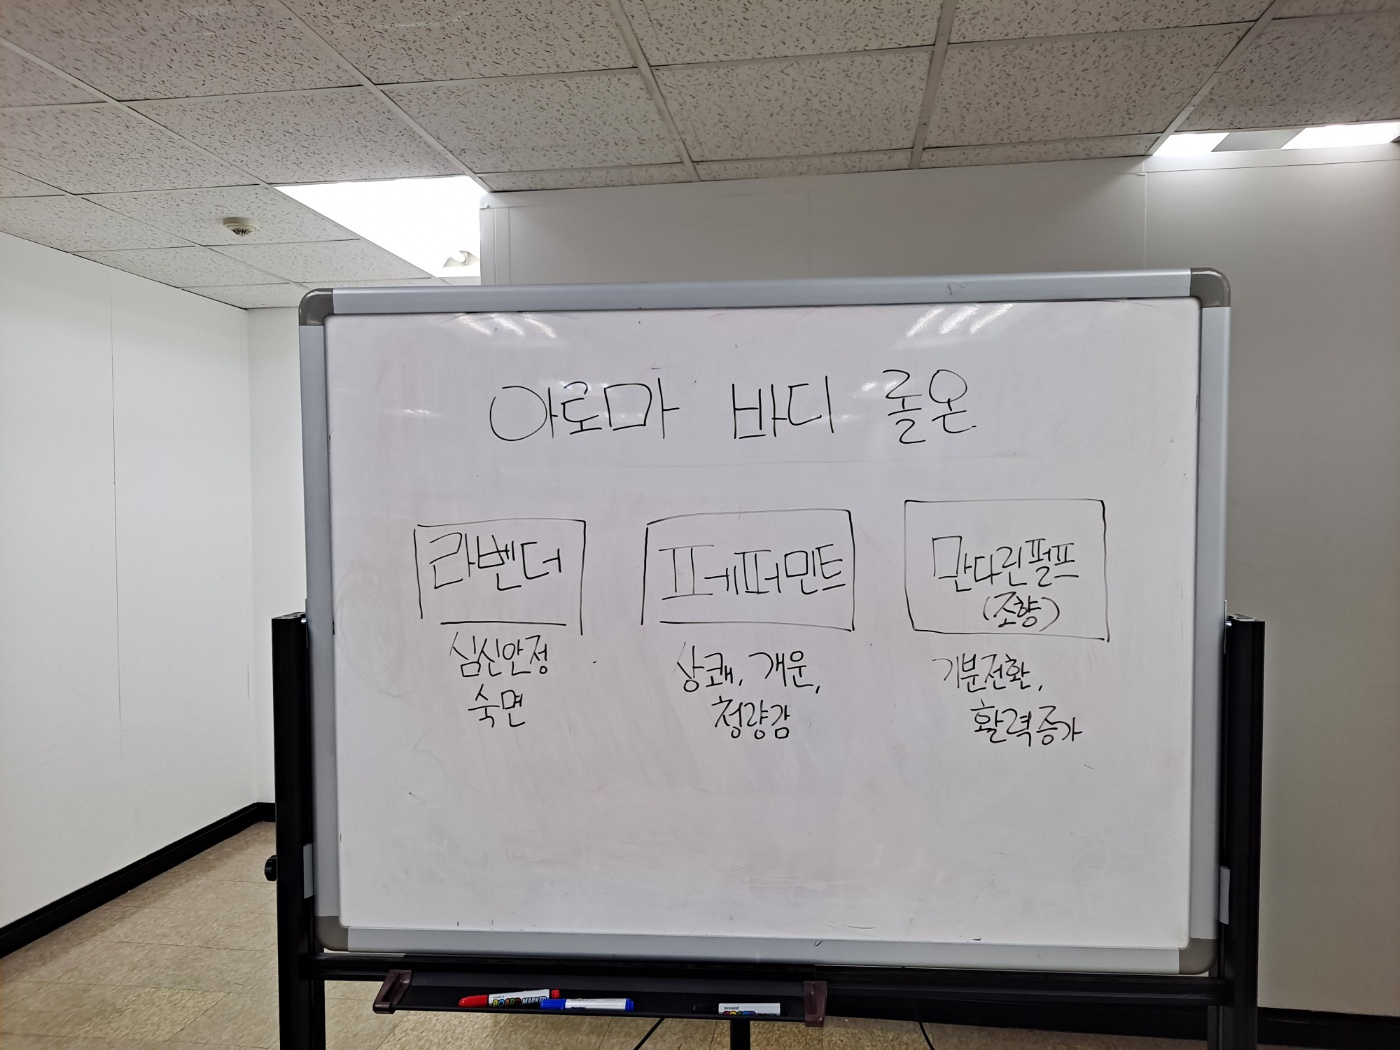 아로마 바디 롤온
라벤더
심신안정
숙면
페퍼민트
상쾌, 개운,
청량감
만다린펄프
(조향)
기분전환,
활력증가
BOARD MARKER